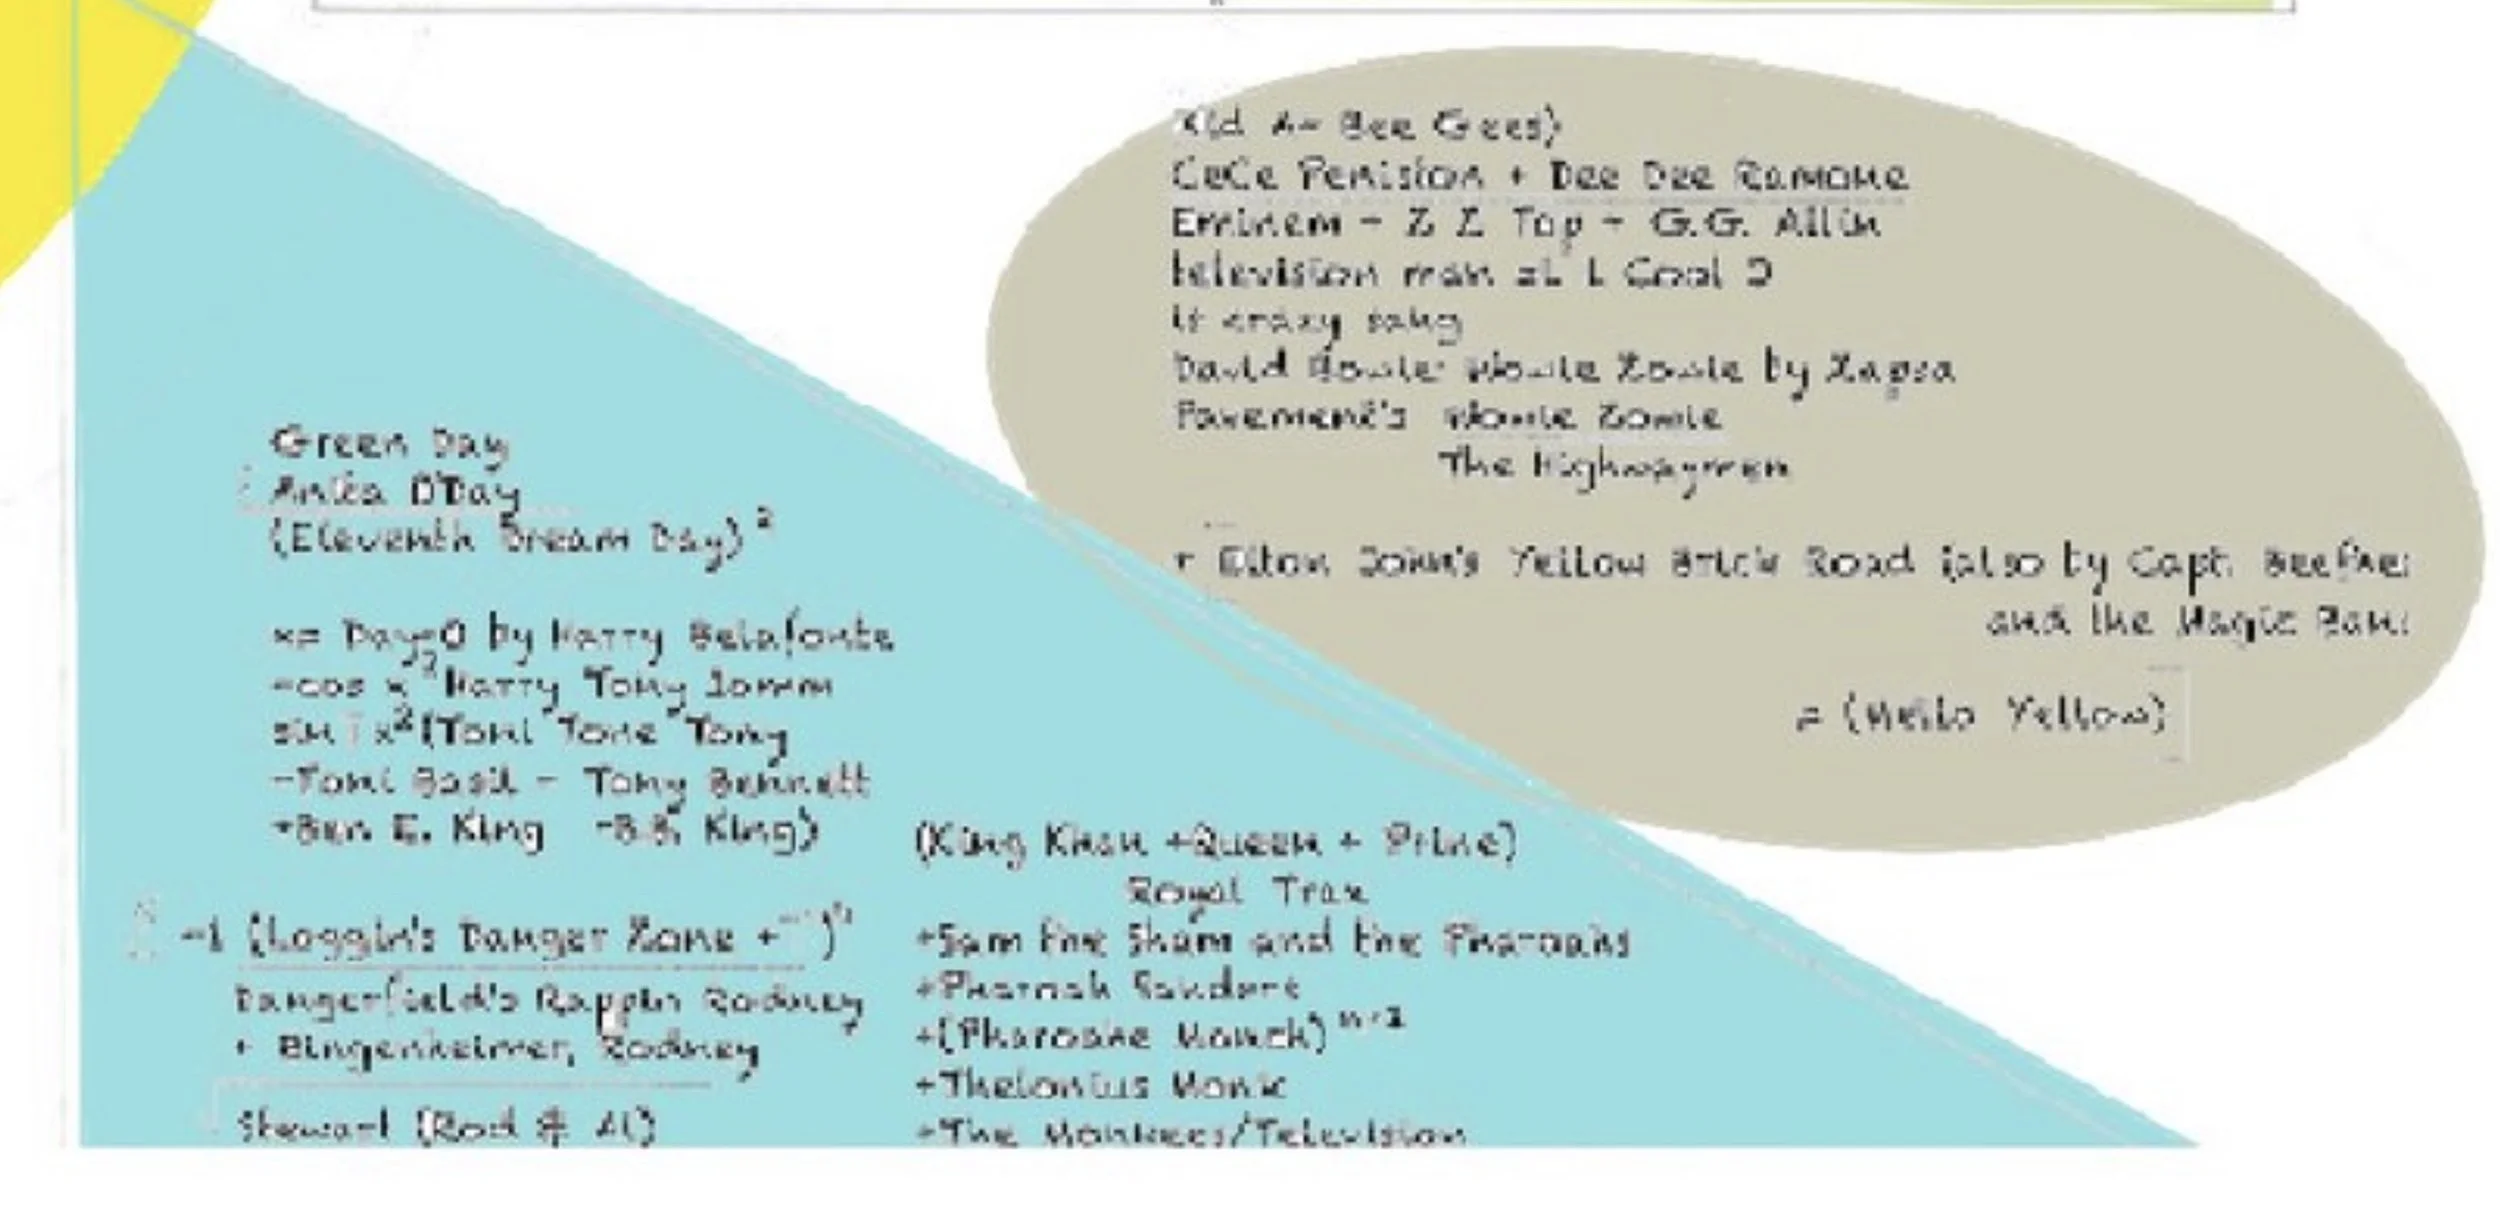 Kid A - Bee Gees)
CeCe Peniston + Dee Dee Ramone
Eminem - Z Z Top - G.G. Allin
television man =L L Cool J
is crazy song
David Bowie Wowie Zowie by Zappa
Pavement's Wowie Zowie
The Highwaymen
+ Elton John's Yellow Brick Road (also by Capt. Beefhe
and the Magic Ban
= (Hello Yellow)
Green Day
Anita O'Day
(Eleventh Dream Day)²
x= Day-O by Harry Belafonte
-cos x² Harry Tony Iommi
sin x² (Toni Tone Tony
-Toni Basil - Tony Bennett
+Ben E. King -B.B. King)
-1 (Loggin's Danger Zone +
Dangerfield's Rappin Rodney
+ Bingenheimer, Rodney
Stewart (Rod & Al)
(King Khan +Queen + Prine)
Royal Trax
+Sam the Sham and the Pharoahs
+Pharoah Sanders
+(Pharoahe Monch)
+Thelonius Monk
+The Monkees/Television